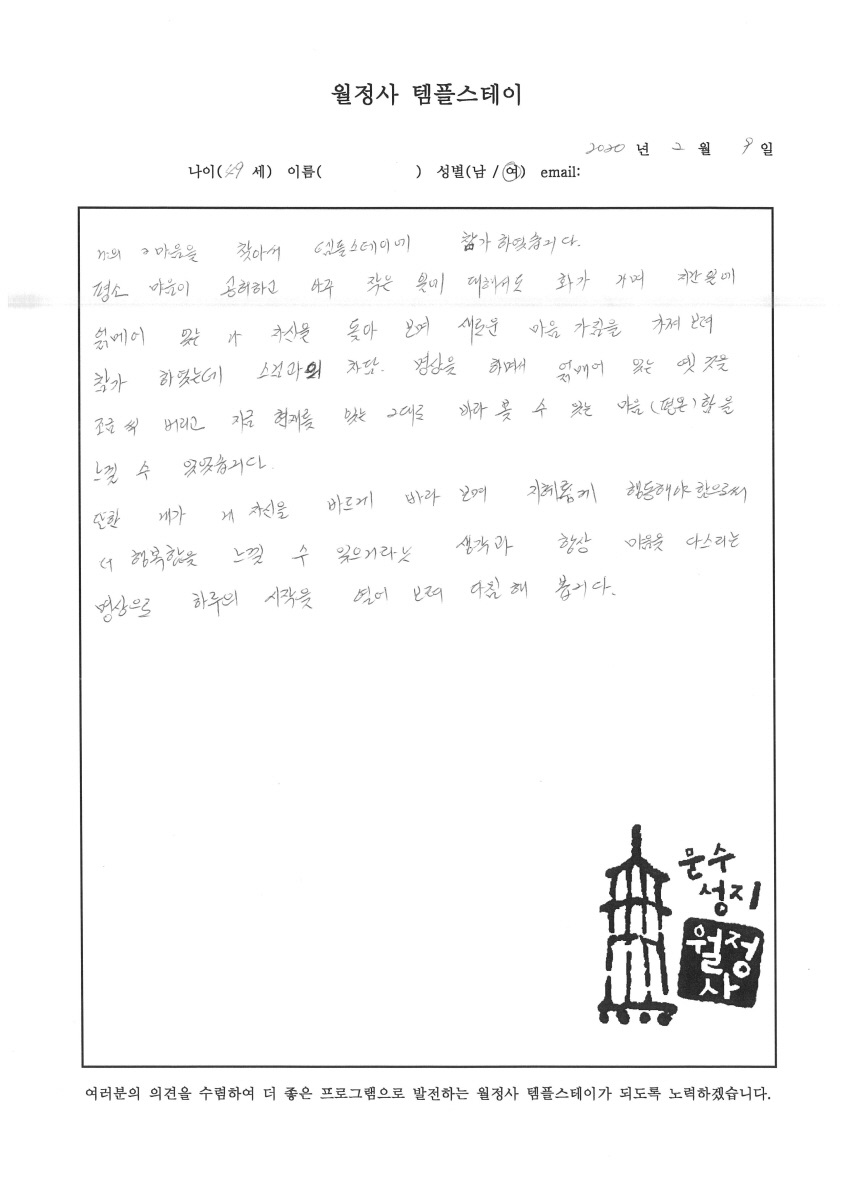 월정사 템플스테이
2020 년 2 월 9 일
나이( 49 세) 이름( ) 성별(남 / 여) email:
마음을 찾아서 템플스테이에 참가 하였습니다.
평소 마음이 공허하고 자주 작은 일에 대해서도 화가 나며 지난 일에
얽메어 있는 나 자신을 돌아 보며 새로운 마음 가짐을 가져 보려
참가 하였는데 스님과의 차담. 명상을 하면서 얽매어 있는 옛 것을
조금 씩 버리고 지금 현재를 있는 그대로 바라 볼 수 있는 마음(평온)함을
느낄 수 있었습니다.
또한 내가 내 자신을 바르게 바라 보며 지혜롭게 행동해야 함으로써
더 행복함을 느낄 수 있으리라는 생각과 항상 마음을 다스리는
명상으로 하루의 시작을 열어 보려 다짐 해 봅니다.
문수
성지
월정
사
여러분의 의견을 수렴하여 더 좋은 프로그램으로 발전하는 월정사 템플스테이가 되도록 노력하겠습니다.